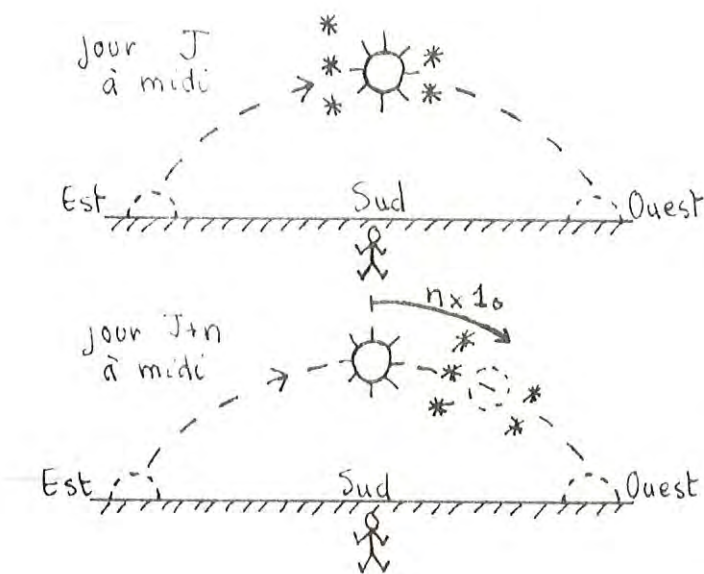 Jour J
à midi
Est Sud Ouest
n x 1°
jour J+n
à midi
Est Sud Ouest